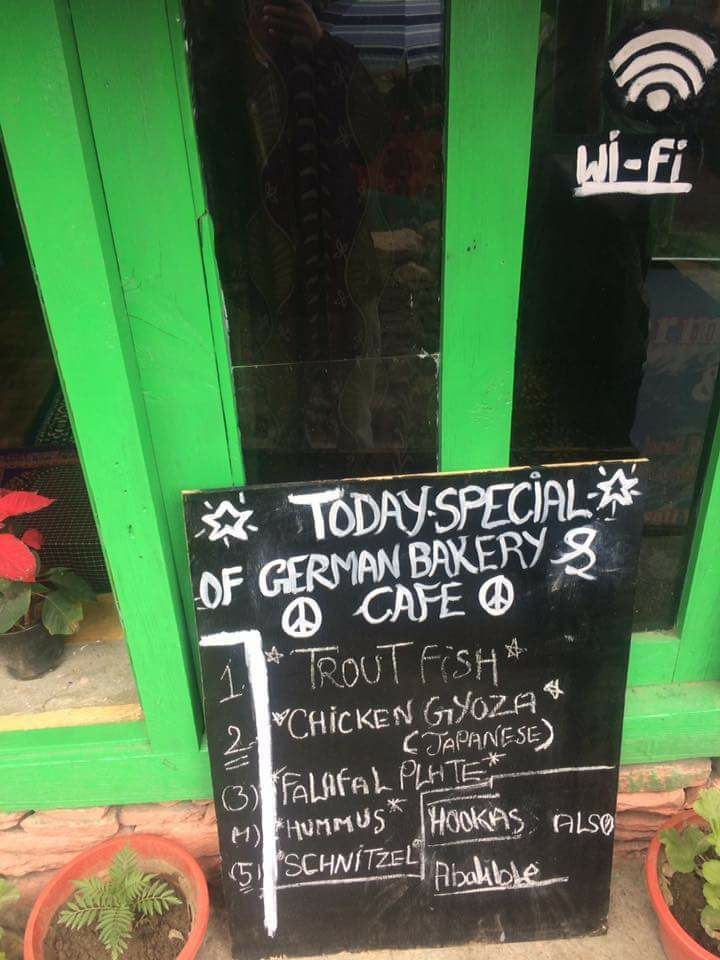 Wi-Fi
TODAY.SPECIAL
OF GERMAN BAKERY &
CAFE
1 TROUT FISH
2 CHICKEN GYOZA
(JAPANESE)
(3) FALAFAL PLATE
(4) HUMMUS
(5) SCHNITZEL
HOOKAS ALSO
Abalible